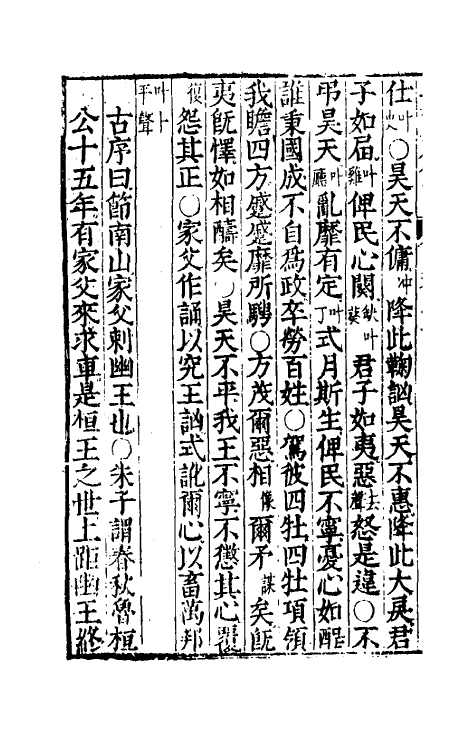 仕叶史○昊天不傭冲降此鞠訩昊天不惠降此大戾君
子如屆叶雞俾民心闋叶葵君子如夷惡去聲怒是違○不
弔昊天叶廳亂靡有定叶丁式月斯生俾民不寧憂心如酲
誰秉國成不自爲政卒勞百姓○駕彼四牡四牡項領
我瞻四方蹙蹙靡所騁○方茂爾惡相像爾矛謀矣旣
夷旣懌如相醻矣○昊天不平我王不寧不懲其心覆
復怨其正○家父作誦以究王訩式訛爾心以畜萬邦
叶卜平聲
古序曰節南山家父刺幽王也○朱子謂春秋魯桓
公十五年有家父來求車是桓王之世上距幽王終